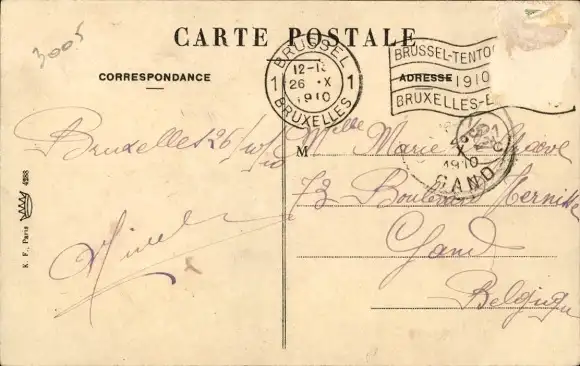 3005
CARTE POSTALE
CORRESPONDANCE
ADRESSE
BRUSSEL
1 12-1 1
26 X
1910
BRUXELLES
BRUSSEL-TENTO
1910
BRUXELLES-E
Bruxelles 26/10/10
M
Mlle Marie
73 Boulevard
Gand
Belgique
1910
GAND
K. F., Paris
4288